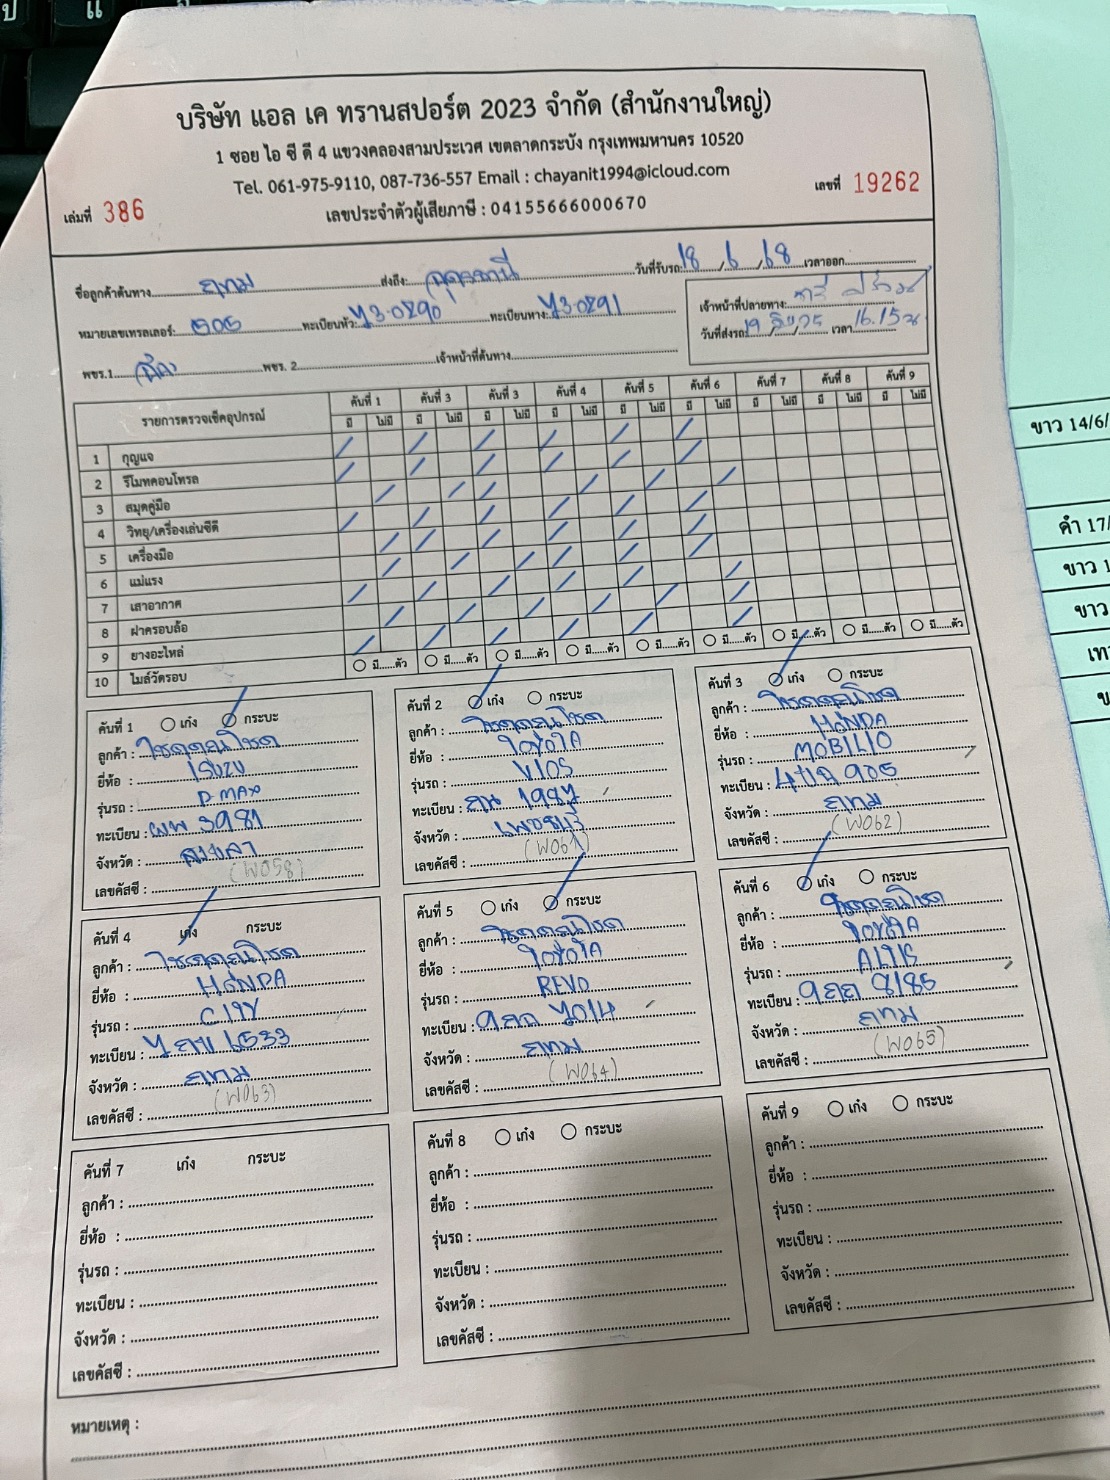 บริษัท แอล เค ทรานสปอร์ต 2023 จำกัด (สำนักงานใหญ่)
1 ซอย ไอ ซี ดี 4 แขวงคลองสามประเวศ เขตลาดกระบัง กรุงเทพมหานคร 10520
Tel. 061-975-9110, 087-736-557 Email : chayanit1994@icloud.com
เลขประจำตัวผู้เสียภาษี : 04155666000670
เล่มที่ 386
เลขที่ 19262
ชื่อลูกค้าต้นทาง กทม ส่งถึง: อุดรธานี วันที่รับรถ: 18 / 6 / 68 เวลาออก
หมายเลขเทรลเลอร์: 505 ทะเบียนหัว: 73-0290 ทะเบียนหาง: 73-0291
เจ้าหน้าที่ปลายทาง:
วันที่ส่งรถ 19 เวลา 16.15 น
พขร.1 พขร. 2 เจ้าหน้าที่ต้นทาง
รายการตรวจเช็คอุปกรณ์ คันที่ 1 คันที่ 3 คันที่ 3 คันที่ 4 คันที่ 5 คันที่ 6 คันที่ 7 คันที่ 8 คันที่ 9
มี ไม่มี มี ไม่มี มี ไม่มี มี ไม่มี มี ไม่มี มี ไม่มี มี ไม่มี มี ไม่มี มี ไม่มี
1 กุญแจ
2 รีโมทคอนโทรล
3 สมุดคู่มือ
4 วิทยุ/เครื่องเล่นซีดี
5 เครื่องมือ
6 แม่แรง
7 เสาอากาศ
8 ฝาครอบล้อ
9 ยางอะไหล่
10 ไมล์วัดรอบ มี......ตัว มี......ตัว มี......ตัว มี......ตัว มี......ตัว มี......ตัว มี......ตัว มี......ตัว มี......ตัว
คันที่ 1 เก๋ง กระบะ
ลูกค้า : โชคคูณโชค
ยี่ห้อ : ISUZU
รุ่นรถ : D-MAX
ทะเบียน : ผพ 3981
จังหวัด : สงขลา
เลขคัสซี : (W058)
คันที่ 2 เก๋ง กระบะ
ลูกค้า : โชคคูณโชค
ยี่ห้อ : TOYOTA
รุ่นรถ : VIOS
ทะเบียน : กน 1987
จังหวัด : เพชรบุรี
เลขคัสซี : (W061)
คันที่ 3 เก๋ง กระบะ
ลูกค้า : โชคคูณโชค
ยี่ห้อ : HONDA
รุ่นรถ : MOBILIO
ทะเบียน : 905
จังหวัด : กทม
เลขคัสซี : (W062)
คันที่ 4 เก๋ง กระบะ
ลูกค้า : โชคคูณโชค
ยี่ห้อ : HONDA
รุ่นรถ : CITY
ทะเบียน : 7 กข 6533
จังหวัด : กทม
เลขคัสซี : (W063)
คันที่ 5 เก๋ง กระบะ
ลูกค้า : โชคคูณโชค
ยี่ห้อ : TOYOTA
รุ่นรถ : REVO
ทะเบียน : 7014
จังหวัด : กทม
เลขคัสซี : (W064)
คันที่ 6 เก๋ง กระบะ
ลูกค้า : โชคคูณโชค
ยี่ห้อ : TOYOTA
รุ่นรถ : ALTIS
ทะเบียน : 9กก 8185
จังหวัด : กทม
เลขคัสซี : (W065)
คันที่ 7 เก๋ง กระบะ
ลูกค้า :
ยี่ห้อ :
รุ่นรถ :
ทะเบียน :
จังหวัด :
เลขคัสซี :
คันที่ 8 เก๋ง กระบะ
ลูกค้า :
ยี่ห้อ :
รุ่นรถ :
ทะเบียน :
จังหวัด :
เลขคัสซี :
คันที่ 9 เก๋ง กระบะ
ลูกค้า :
ยี่ห้อ :
รุ่นรถ :
ทะเบียน :
จังหวัด :
เลขคัสซี :
หมายเหตุ :
ขาว 14/6/
ขาว 1
ขาว